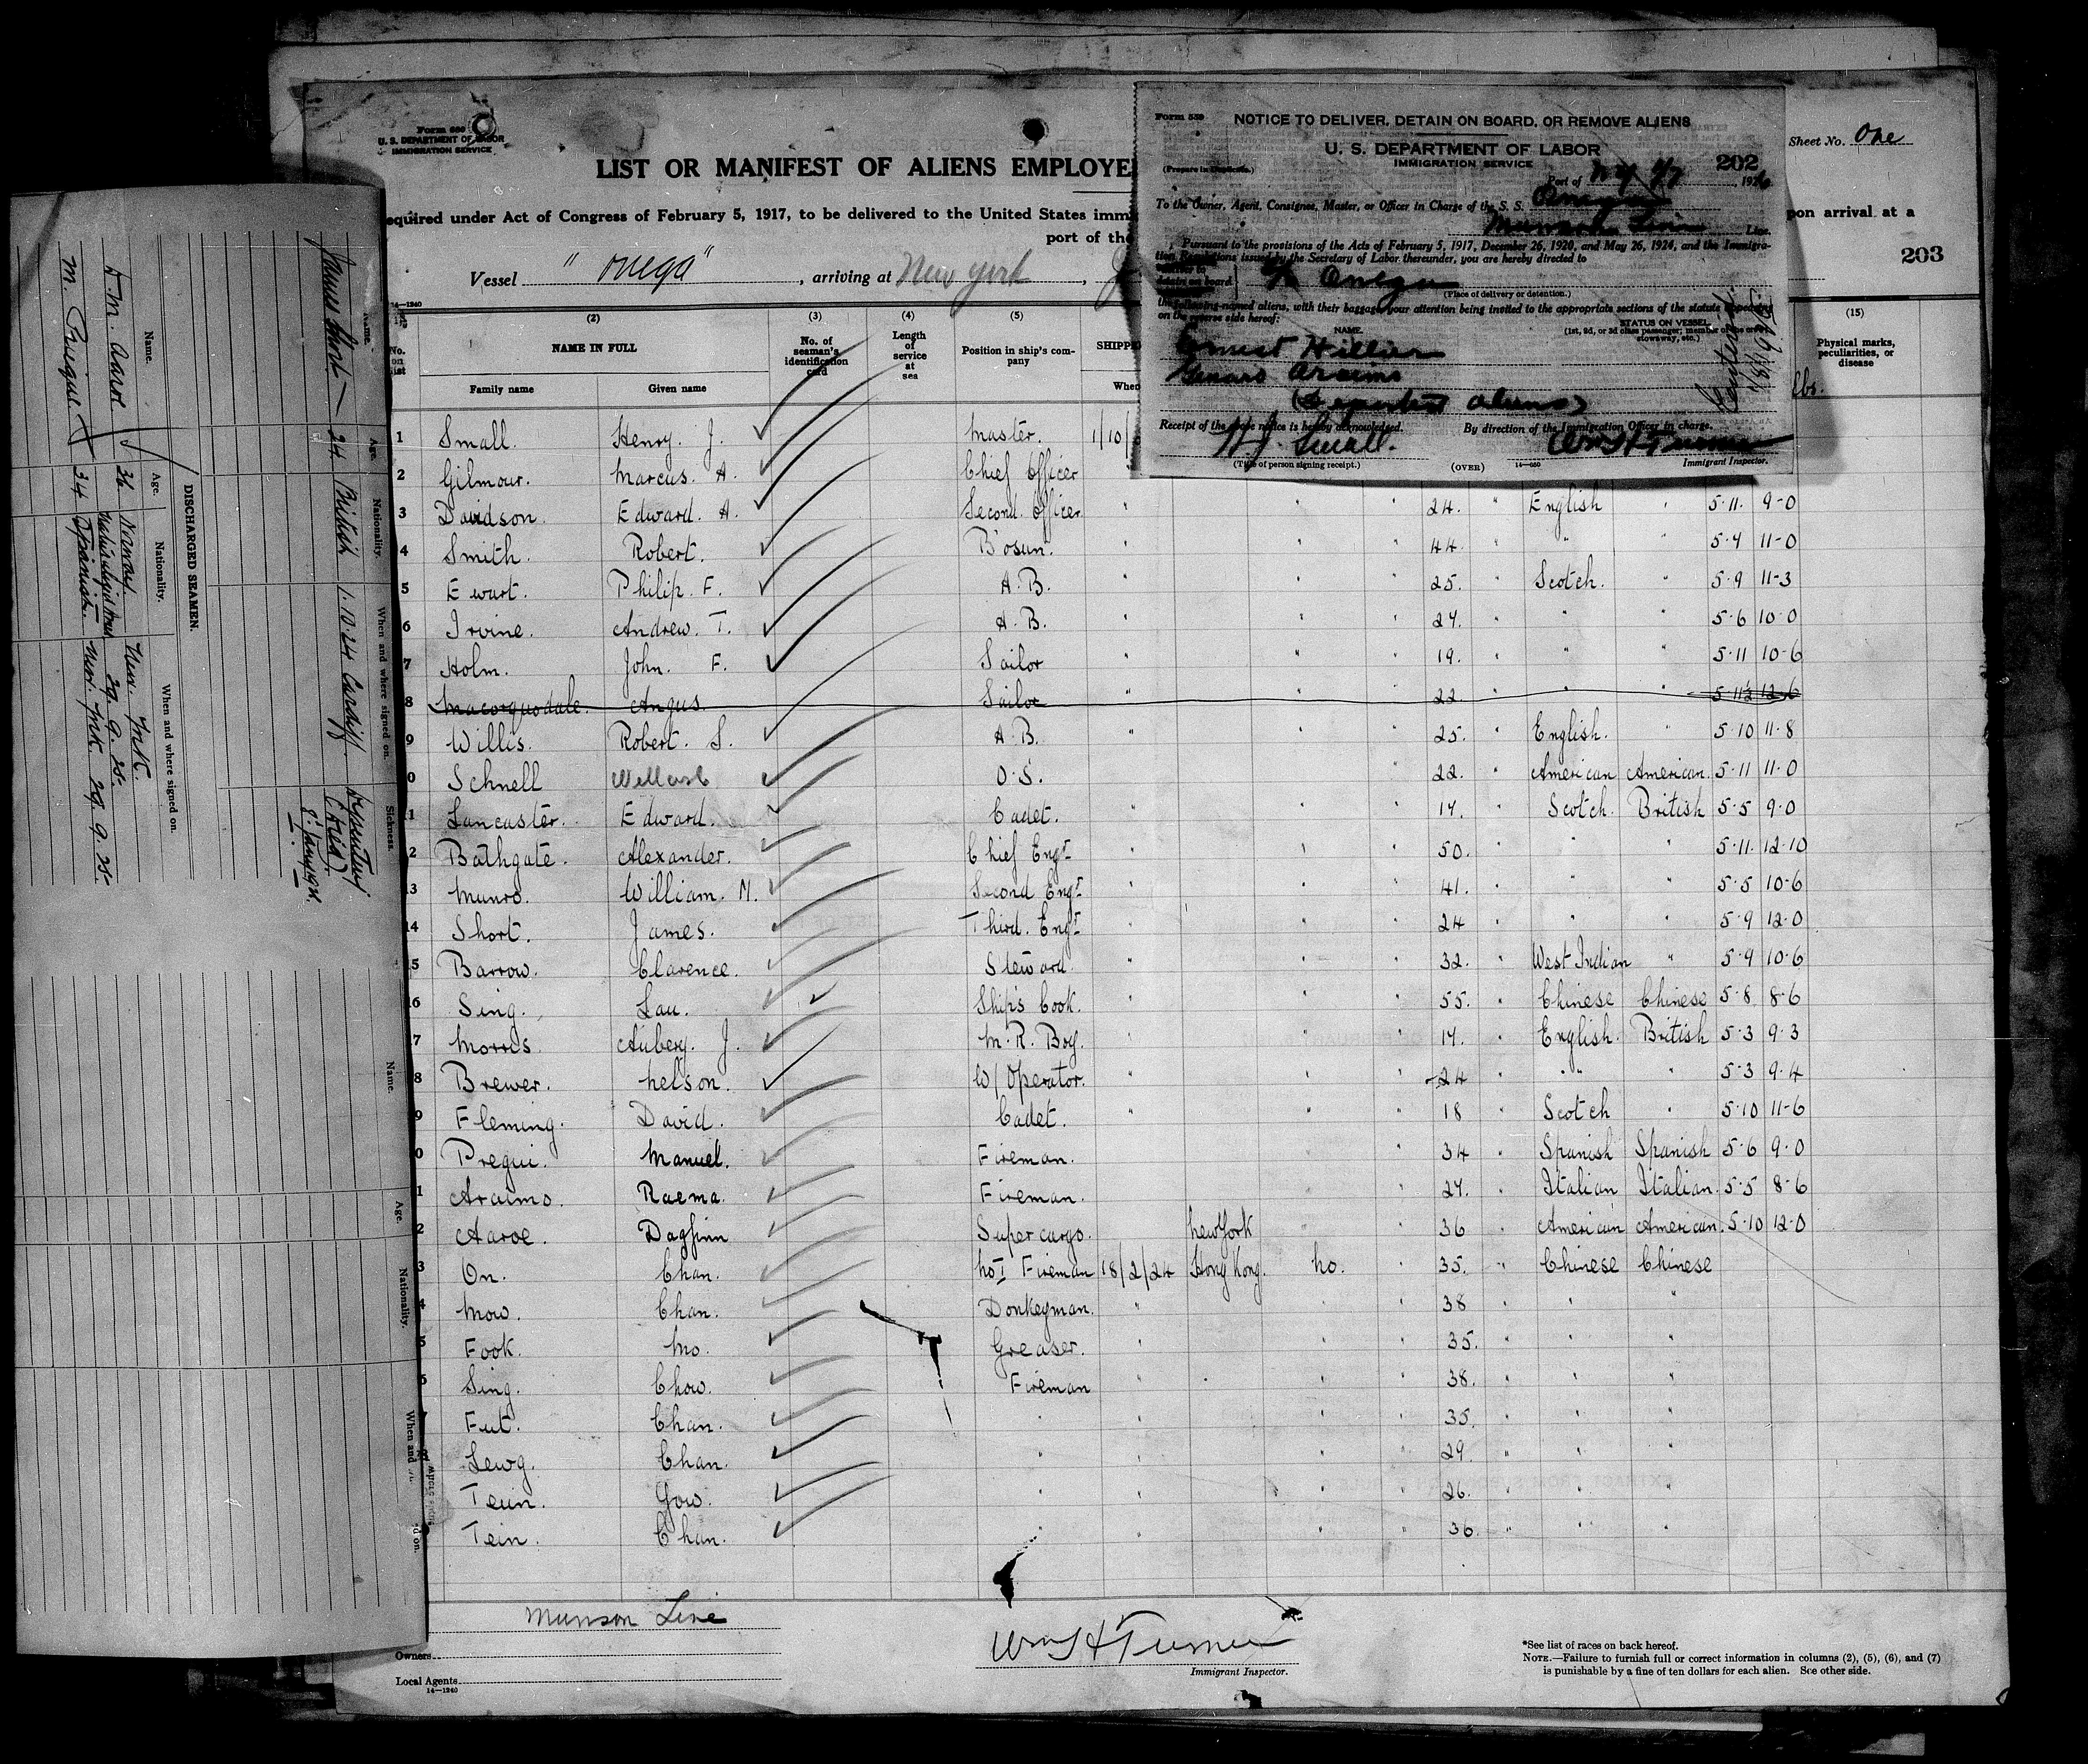 Form 680
U. S. DEPARTMENT OF LABOR
IMMIGRATION SERVICE
Sheet No. One
LIST OR MANIFEST OF ALIENS EMPLOYE
equired under Act of Congress of February 5, 1917, to be delivered to the United States immi
pon arrival at a
port of the
203
Vessel "Onega", arriving at New York,
14—1240
Form 559
NOTICE TO DELIVER, DETAIN ON BOARD, OR REMOVE ALIENS
U. S. DEPARTMENT OF LABOR
IMMIGRATION SERVICE
202
(Prepare in Duplicate.)
Port of NY 1/7, 1926
To the Owner, Agent, Consignee, Master, or Officer in Charge of the S. S. Onega
Line.
Pursuant to the provisions of the Acts of February 5, 1917, December 26, 1920, and May 26, 1924, and the Immigra-
tion Regulations issued by the Secretary of Labor thereunder, you are hereby directed to
detain on board
Onega
(Place of delivery or detention.)
the following-named aliens, with their baggage, your attention being invited to the appropriate sections of the statute appearing
on the reverse side hereof:
NAME.
STATUS ON VESSEL
(1st, 2d, or 3d class passenger; member of the crew, stowaway, etc.)
Ernest Hillier
Araimo
aliens)
Receipt of the above notice is hereby acknowledged.
By direction of the Immigration Officer in charge.
H J. Small.
Wm H Turner
(Title of person signing receipt.)
(OVER)
14—650
Immigrant Inspector.
(2)
NAME IN FULL
Family name
Given name
(3)
No. of seaman's identification card
(4)
Length of service at sea
(5)
Position in ship's com-
pany
SHIPP
Whe
(15)
Physical marks, peculiarities, or disease
No. on list
lbs.
1 Small. Henry. J. Master. 1/10/
2 Gilmour. Marcus. A. Chief Officer
3 Davidson. Edward. A. Second Officer " " " 24. " English " 5·11. 9-0
4 Smith. Robert. B'osun. " " " 44. " " " 5·4 11-0
5 Ewart. Philip. F. A.B. " " " 25. " Scotch. " 5·9 11-3
6 Irvine. Andrew. T. A.B. " " " 27. " " " 5·6 10·0
7 Holm. John. F. Sailor " " " 19. " " " 5·11 10-6
8 Macorquodale. Angus. Sailor " " " 22. " " " 5·11½ 12·6
9 Willis. Robert. S. A.B. " " " 25. " English. " 5·10 11·8
0 Schnell O.S. 22. " American American. 5·11 11·0
1 Lancaster. Edward. Cadet. " " " 17. " Scotch. British 5·5 9·0
2 Bathgate. Alexander. Chief Engr " " " 50. " " " 5·11. 12·10
13 Munro. William. M. Second Engr " " " 41. " " " 5·5 10-6
14 Short. James. Third. Engr " " " 24 " " " 5·9 12·0
15 Barrow. Clarence. Steward. " " " 32. " West Indian " 5·9 10·6
6 Sing. Lau. Ship's Cook. " " " 55. " Chinese Chinese 5·8 8·6
7 Morris. Aubery. J. M.R. Boy. " " " 17. " English. British 5·3 9·3
8 Brewer. Nelson. W/Operator. " " " 24 " " " 5·3 9·4
9 Fleming. David. Cadet. " " " 18 " Scotch " 5·10 11-6
0 Pregui. Manuel. Fireman. " 34 " Spanish Spanish 5·6 9·0
1 Araimo. Raema. Fireman. " 27. " Italian Italian. 5·5 8-6
2 Aaroe. Dagfinn Supercargo. New York " " 36 " American American. 5·10 12·0
3 On. Chan. No I Fireman 18/2/24 Hong Kong. No. " 35. " Chinese Chinese
4 Mow. Chan. Donkeyman. " " " 38 " " "
5 Fook. Mo. Greaser. " " " 35. " " "
6 Sing. Chow. Fireman " " " " 38. " " "
7 Fut. Chan. " " " " 35. " "
Lewg. Chan. " " " " 29. " " "
Teun. Gow. " " " " 26. " " "
Tein. Chan. " " " " 36. " " "
Munson Line
Owners
Local Agents
14—1240
Wm H Turner
Immigrant Inspector.
*See list of races on back hereof.
NOTE.—Failure to furnish full or correct information in columns (2), (5), (6), and (7)
is punishable by a fine of ten dollars for each alien. See other side.
Name. Age. Nationality. When and where signed on. Sickness.
James Short — 24 British 1·10·24 Cardiff. Dysentery
St Jamaica.
DISCHARGED SEAMEN.
Name. Age. Nationality. When and where signed on.
D.M. Aaroe 36 Norway New York.
29. 9. 25.
M. Preigue 34 Spanish. New York 29. 9. 25.
Name. Age. Nationality. When and
d on.